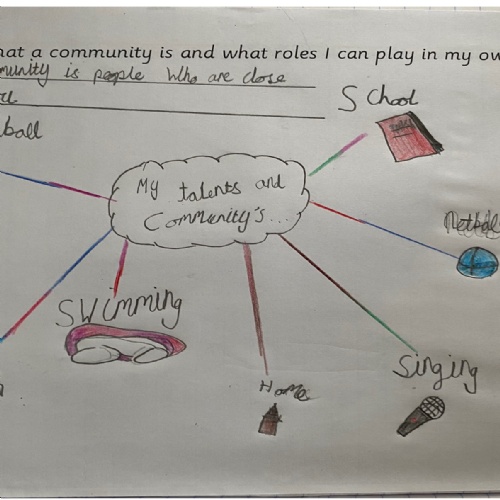 hat a community is and what roles I can play in my ow
munity is people who are close
School
ball
My talents and
Community's....
Netbal
Swimming
Singing
Home